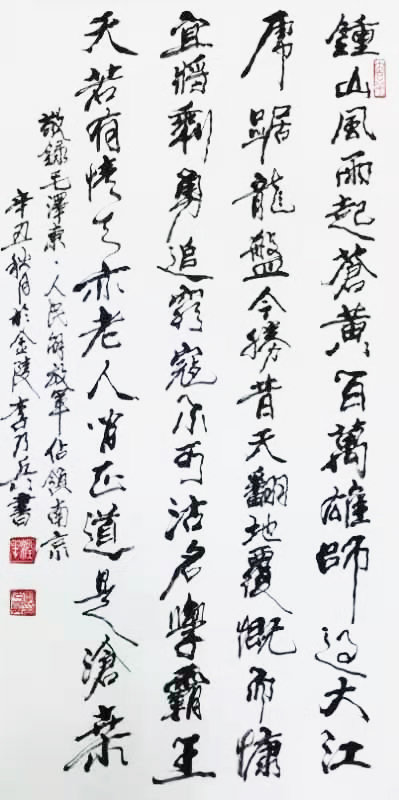 鍾山風雨起蒼黄百萬雄師过大江
虎踞龍盤今勝昔天翻地覆慨而慷
宜將剩勇追窮寇不可沽名學霸王
天若有情天亦老人间正道是滄桑
敬録毛澤東·人民解放軍佔領南京
辛丑秋月於金陵李乃兵書